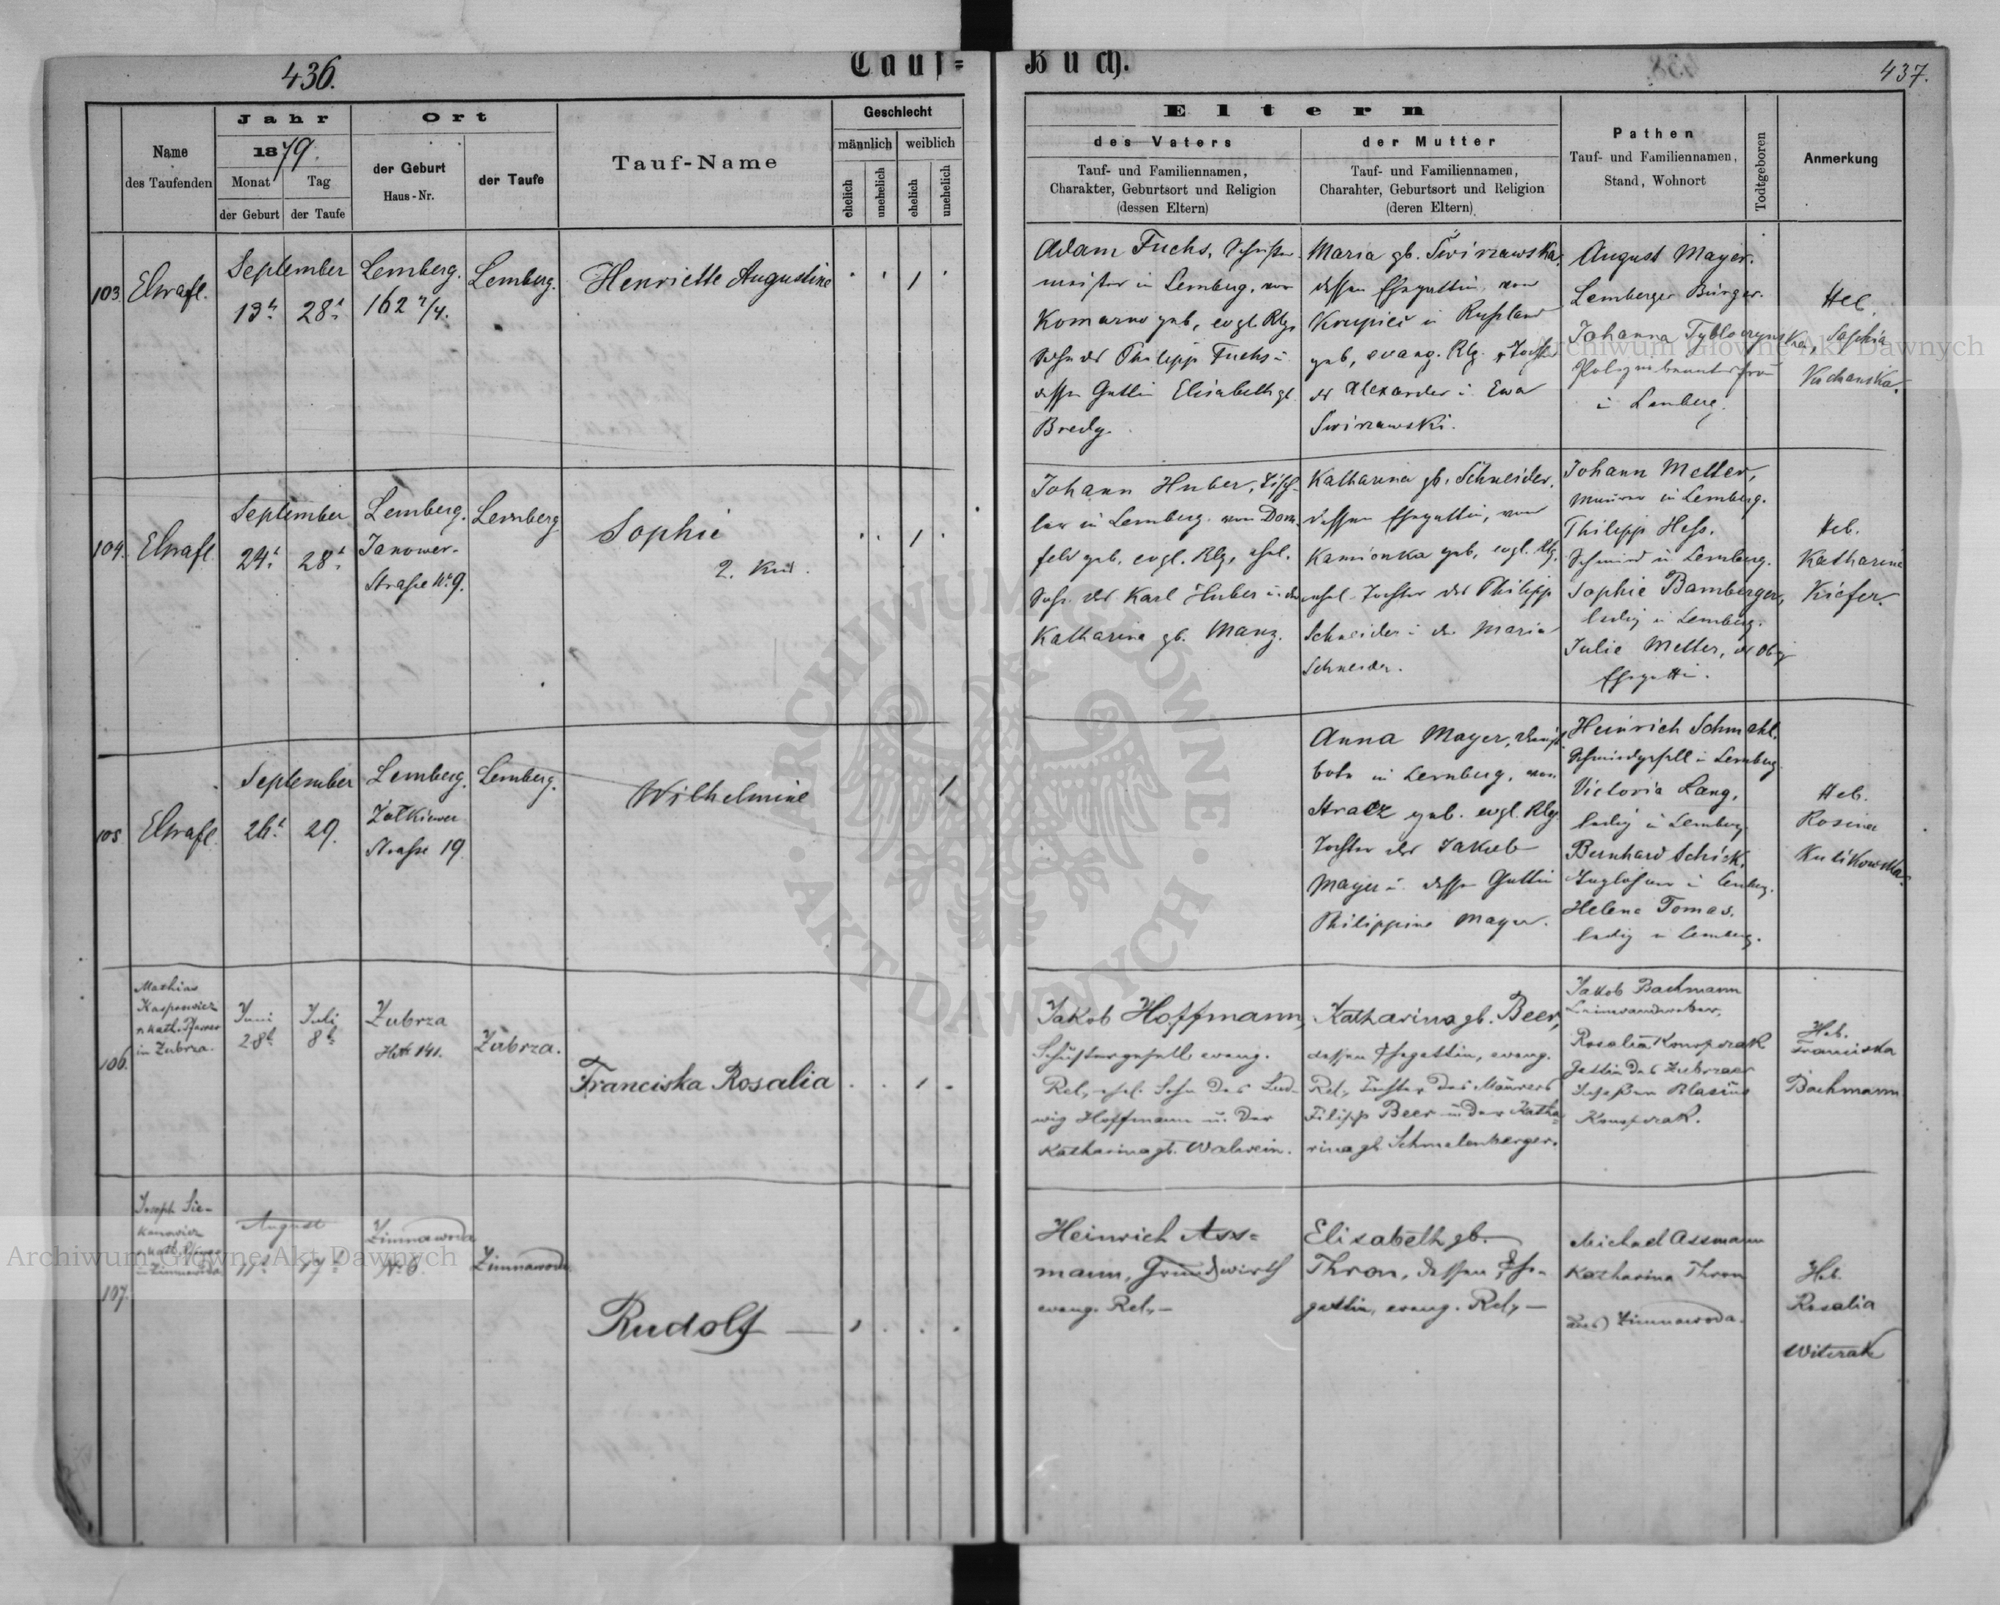 436.
Tauf=
Buch.
437.
Name
des Taufenden
Jahr
1879.
Monat
Tag
der Geburt
der Taufe
Ort
der Geburt
Haus-Nr.
der Taufe
Tauf-Name
Geschlecht
männlich
weiblich
ehelich
unehelich
ehelich
unehelich
Eltern
des Vaters
Tauf- und Familiennamen,
Charakter, Geburtsort und Religion
(dessen Eltern)
der Mutter
Tauf- und Familiennamen,
Charahter, Geburtsort und Religion
(deren Eltern)
Pathen
Tauf- und Familiennamen,
Stand, Wohnort
Todtgeboren
Anmerkung
103.
September
13t.
28t.
Lemberg.
162 2/4.
Lemberg.
Henriette Augustine
Adam Fuchs,
meister in Lemberg, von
Komarno geb, evgl. Rlg.
Sohn des Philipp Fuchs u.
dessen Gattin Elisabeth gb.
Bredy.
Maria gb. Swirzawska,
dessen Ehegattin, von
Krupiec in Rußland
geb, evang. Rlg. Tochter
des Alexander u. Ewa
Swirzawski.
August Mayer.
Lemberger Bürger.
Johanna
in Lemberg.
Heb.
104.
September
24t.
28t.
Lemberg.
Janower-
Straße No 9.
Lemberg
Sophie
2. Kind.
Johann Huber, Tisch-
ler in Lemberg von Dorn-
feld geb, evgl. Rlg, ehel.
Sohn des Karl Huber u. der
Katharina gb. Manz.
Katharina gb. Schneider,
dessen Ehegattin, von
Kamionka geb, evgl. Rlg.
ehel. Tochter des Philipp
Schneider u. der Maria
Schneider.
Johann Metter,
Maurer in Lemberg.
Philipp Hess,
Schmied in Lemberg.
Sophie Bamberger,
ledig in Lemberg.
Julie Metter, des Obig
Ehegattin.
Heb.
Katharine
Kiefer.
105
September
26t.
29.
Lemberg.
Zołkiewer
Straße 19.
Lemberg.
Wilhelmine
Anna Mayer, Dienst-
bote in Lemberg, von
geb. evgl. Rlg.
Tochter des Jakob
Mayer u. dessen Gattin
Philippine Mayer.
Heinrich Schmahl,
Schmiedgesell in Lemberg
Victoria Lang,
ledig in Lemberg.
Bernhard Schick,
in Lemberg.
Helene Tomas,
ledig in Lemberg.
Heb.
Rosina
Kulikowska.
106.
Mathias
Kasparowicz
r. kath. Pfarrer
in Zubrza.
Juni
28t.
Juli
8t.
Zubrza
HNo 141.
Zubrza.
Franciska Rosalia
Jakob Hoffmann,
Schustergesell evang.
Rel, ehel. Sohn des Lud-
wig Hoffmann u. der
Katharina gb. Walwein.
Katharina gb. Beer,
dessen Ehegattin, evang.
Rel, Tochter des Maurers
Filipp Beer u. der Katha-
rina gb. Schmalenberger.
Jakob Bachmann
Leinwandweber,
Rosalia Konopczak
Gattin des Zubrzaer
Insaßen Blasius
Konopczak.
Heb.
Franciska
Bachmann
107.
Joseph Sie-
kanowicz
r. kath. Pfarrer
in Zimnawoda
August
11t.
17t.
Zimnawoda
No 6.
Zimnawoda
Rudolf
Heinrich Ass=
mann, Grundwirth
evang. Rel,
Elisabeth gb.
Thron, dessen Ehe-
gattin, evang. Rel,
Michael Assmann
Katharina Thron
aus Zimnawoda.
Heb.
Rosalia
Witczak
Archiwum Główne Akt Dawnych
Archiwum Główne Akt Dawnych
ARCHIWUM GŁÓWNE
AKT DAWNYCH